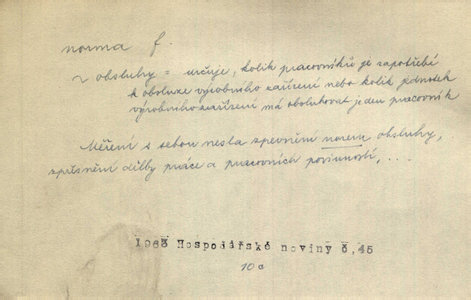 norma f.
~ obsluhy = určuje, kolik pracovníků je zapotřebí
k obsluze výrobního zařízení nebo kolik jednotek
výrobního zařízení má obsluhovat jeden pracovník
Měření s sebou nesla zpevnění norem obsluhy,
zpřesnění dělby práce a pracovních povinností, ...
1963 Hospodářské noviny č,45
10a